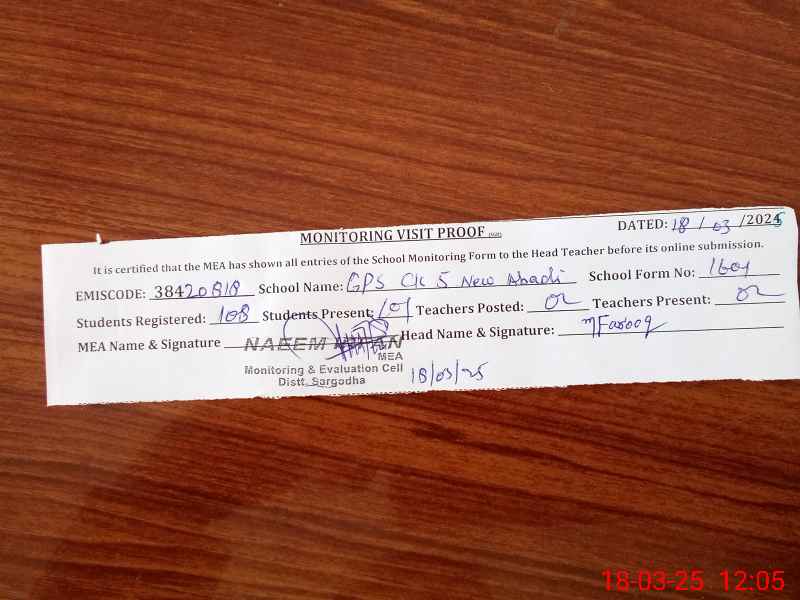 MONITORING VISIT PROOF
DATED: 18 / 03 /2025
It is certified that the MEA has shown all entries of the School Monitoring Form to the Head Teacher before its online submission.
EMISCODE: 38420818 School Name: GPS Ck 5 New Abadi School Form No:
Students Registered: 108 Students Present: 101 Teachers Posted: 02 Teachers Present: 02
MEA Name & Signature NAEEM Head Name & Signature: M Farooq
MEA
Monitoring & Evaluation Cell
Distt. Sargodha
18/03/25
18-03-25 12:05